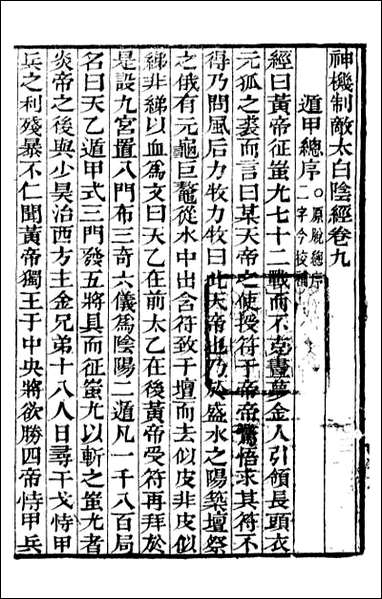 神機制敵太白陰經卷九
遁甲總序○原脫總序二字今校補
經曰黃帝征蚩尤七十二戰而不克晝夢金人引領長頭衣
元狐之裘而言曰某天帝之使授符于帝帝驚悟求其符不
得乃問風后力牧力牧曰此天帝也乃於盛水之陽築壇祭
之俄有元龜巨鼇從水中出含符致于壇而去似皮非皮似
綈非綈以血爲文曰天乙在前太乙在後黃帝受符再拜於
是設九宮置八門布三奇六儀爲陰陽二遁凡一千八百局
名曰天乙遁甲式三門發五將具而征蚩尤以斬之蚩尤者
炎帝之後與少昊治西方主金兄弟十八人日尋干戈恃甲
兵之利殘暴不仁聞黃帝獨王于中央將欲勝四帝恃甲兵